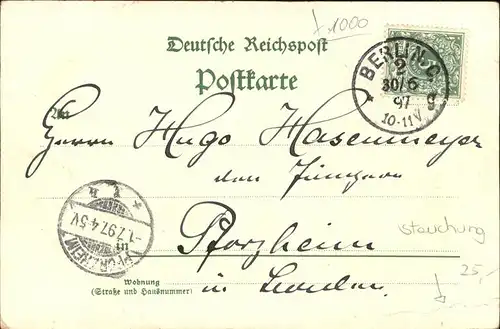 + 1000
Deutsche Reichspost
Postkarte
BERLIN C.
2
30/6
97
g
10-11V
An
Herrn Hugo Hasenmeyer
den Jüngern
Pforzheim
in
PFORZHEIM
-1.7.97.4-5V
Stauchung
25,-
Wohnung
(Straße und Hausnummer)